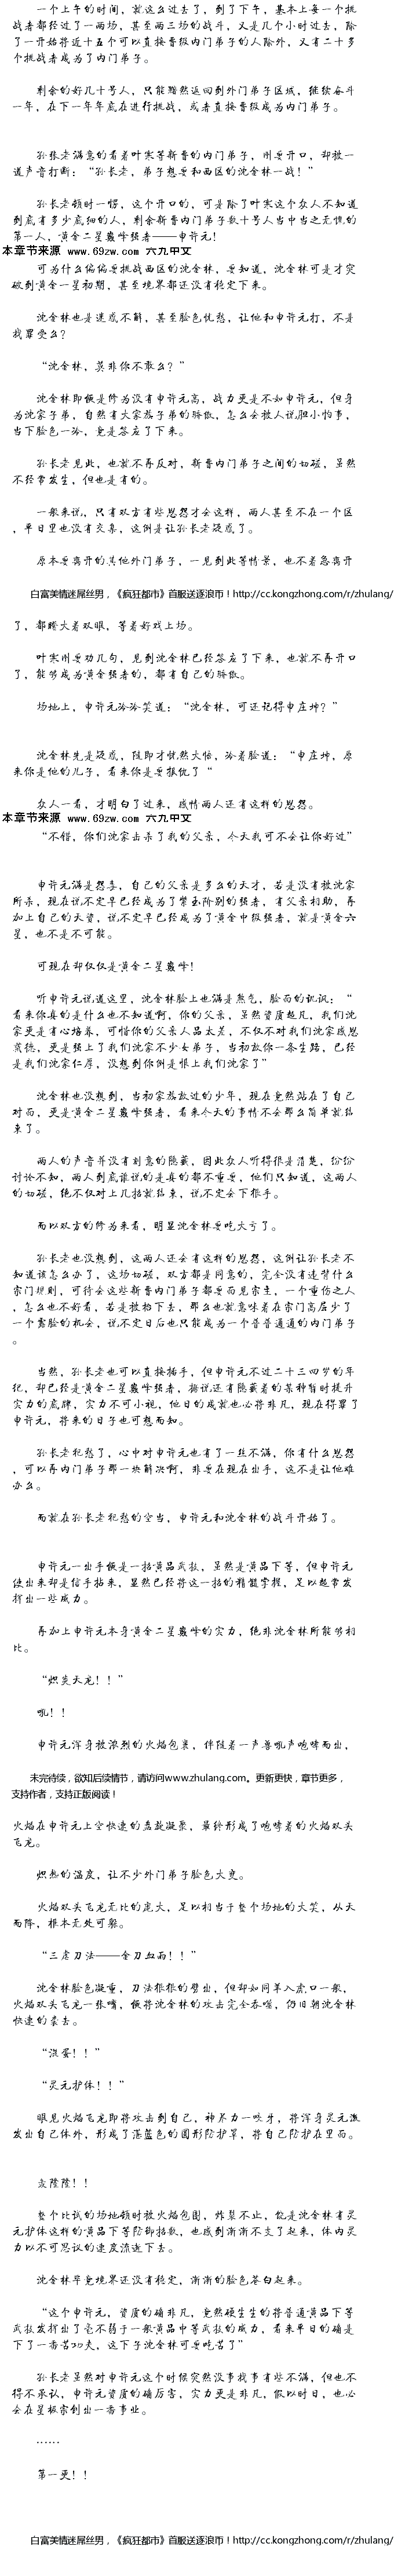 一个上午的时间，就这么过去了，到了下午，基本上每一个挑
战者都经过了一两场，甚至两三场的战斗，又是几个小时过去，除
了一开始将近十五个可以直接晋级内门弟子的人除外，又有二十多
个挑战者成为了内门弟子。
剩余的好几十号人，只能黯然返回到外门弟子区域，继续奋斗
一年，在下一年年底在进行挑战，或者直接晋级成为内门弟子。
孙张老满意的看着叶寒等新晋的内门弟子，刚要开口，却被一
道声音打断：“孙长老，弟子想要和西区的沈金林一战！”
孙长老顿时一愣，这个开口的，可是除了叶寒这个众人不知道
到底有多少底细的人，剩余新晋内门弟子数十号人当中当之无愧的
第一人，黄金二星巅峰强者——申许元！
本章节来源 www.69zw.com 六九中文
可为什么偏偏要挑战西区的沈金林，要知道，沈金林可是才突
破到黄金一星初期，甚至境界都还没有稳定下来。
沈金林也是迷惑不解，甚至脸色忧愁，让他和申许元打，不是
找罪受么？
“沈金林，莫非你不敢么？”
沈金林即便是修为没有申许元高，战力更是不如申许元，但身
为沈家子弟，自然有大家族子弟的骄傲，怎么会被人说胆小怕事，
当下脸色一冷，竟是答应了下来。
孙长老见此，也就不再反对，新晋内门弟子之间的切磋，虽然
不经常发生，但也是有的。
一般来说，只有双方有些恩怨才会这样，两人甚至不在一个区
，平日里也没有交集，这倒是让孙长老疑惑了。
原本要离开的其他外门弟子，一见到此等情景，也不着急离开
白富美情迷屌丝男，《疯狂都市》首服送逐浪币！http://cc.kongzhong.com/r/zhulang/
了，都瞪大着双眼，等着好戏上场。
叶寒刚要劝几句，见到沈金林已经答应了下来，也就不再开口
了，能够成为黄金强者的，都有自己的骄傲。
场地上，申许元冷冷笑道：“沈金林，可还记得申庄坤？”
沈金林先是疑惑，随即才恍然大悟，冷着脸道：“申庄坤，原
来你是他的儿子，看来你是要报仇了“
众人一看，才明白了过来，感情两人还有这样的恩怨。
本章节来源 www.69zw.com 六九中文
“不错，你们沈家击杀了我的父亲，今天我可不会让你好过”
申许元满是怨毒，自己的父亲是多么的天才，若是没有被沈家
所杀，现在说不定早已经成为了紫玉阶别的强者，有父亲相助，再
加上自己的天资，说不定早已经成为了黄金中级强者，就是黄金六
星，也不是不可能。
可现在却仅仅是黄金二星巅峰！
听申许元说道这里，沈金林脸上也满是煞气，脸面的讥讽：“
看来你真的是什么也不知道啊，你的父亲，虽然资质超凡，我们沈
家更是有心培养，可惜你的父亲人品太差，不仅不对我们沈家感恩
戴德，更是强上了我们沈家不少女弟子，当初放你一条生路，已经
是我们沈家仁厚，没想到你倒是恨上我们沈家了”
沈金林也没想到，当初家族放过的少年，现在竟然站在了自己
对面，更是黄金二星巅峰强者，看来今天的事情不会那么简单就结
束了。
两人的声音并没有刻意的隐藏，因此众人听得很是清楚，纷纷
讨论不知，两人到底谁说的是真的都不重要，他们只知道，这两人
的切磋，绝不仅对上几招就结束，说不定会下狠手。
而以双方的修为来看，明显沈金林要吃大亏了。
孙长老也没想到，这两人还会有这样的恩怨，这倒让孙长老不
知道该怎么办了，这场切磋，双方都是同意的，完全没有违背什么
宗门规则，可待会这些新晋内门弟子都要面见宗主，一个重伤之人
，怎么也不好看，若是被抬下去，那么也就意味着在宗门高层少了
一个露脸的机会，说不定日后也只能成为一个普普通通的内门弟子
。
当然，孙长老也可以直接插手，但申许元不过二十三四岁的年
纪，却已经是黄金二星巅峰强者，据说还有隐藏者的某种暂时提升
实力的底牌，实力不可小视，他日的成就也必将非凡，现在得罪了
申许元，将来的日子也可想而知。
孙长老犯愁了，心中对申许元也有了一丝不满，你有什么恩怨
，可以再内门弟子那一块解决啊，非要在现在出手，这不是让他难
办么。
而就在孙长老犯愁的空当，申许元和沈金林的战斗开始了。
申许元一出手便是一招黄品武技，虽然是黄品下等，但申许元
使出来却是信手拈来，显然已经将这一招的精髓掌握，足以超常发
挥出一些威力。
再加上申许元本身黄金二星巅峰的实力，绝非沈金林所能够相
比。
“炽炎天龙！！”
吼！！
申许元浑身被浓烈的火焰包裹，伴随着一声兽吼声咆哮而出，
未完待续，欲知后续情节，请访问www.zhulang.com。更新更快，章节更多，
支持作者，支持正版阅读！
火焰在申许元上空快速的盘旋凝聚，最终形成了咆哮着的火焰双头
飞龙。
炽热的温度，让不少外门弟子脸色大变。
火焰双头飞龙无比的庞大，足以相当于整个场地的大笑，从天
而降，根本无处可躲。
“三虐刀法——金刀血雨！！”
沈金林脸色凝重，刀法狠狠的劈出，但却如同羊入虎口一般，
火焰双头飞龙一张嘴，便将沈金林的攻击完全吞噬，仍旧朝沈金林
快速的袭去。
“混蛋！！”
“灵元护体！！”
眼见火焰飞龙即将攻击到自己，神尽力一咬牙，将浑身灵元激
发出自己体外，形成了湛蓝色的圆形防护罩，将自己防护在里面。
轰隆隆！！
整个比试的场地顿时被火焰包围，炸裂不止，饶是沈金林有灵
元护体这样的黄品下等防御招数，也感到渐渐不支了起来，体内灵
力以不可思议的速度流逝下去。
沈金林毕竟境界还没有稳定，渐渐的脸色苍白起来。
“这个申许元，资质的确非凡，竟然硬生生的将普通黄品下等
武技发挥出了毫不弱于一般黄品中等武技的威力，看来平日的确是
下了一番苦功夫，这下子沈金林可要吃苦了”
孙长老虽然对申许元这个时候突然没事找事有些不满，但也不
得不承认，申许元资质的确厉害，实力更是非凡，假以时日，也必
会在星极宗创出一番事业。
……
第一更！！
白富美情迷屌丝男，《疯狂都市》首服送逐浪币！http://cc.kongzhong.com/r/zhulang/